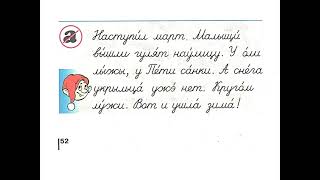 а
Наступи́л март. Малыщи́
вы́шли гуля́т нау́лицу. У о́ли
лы́жы, у Пе́ти са́нки. А сне́га
укрыльца́ ужэ́ нет. Круго́м
лу́жи. Вот и ушла́ зима́!
52